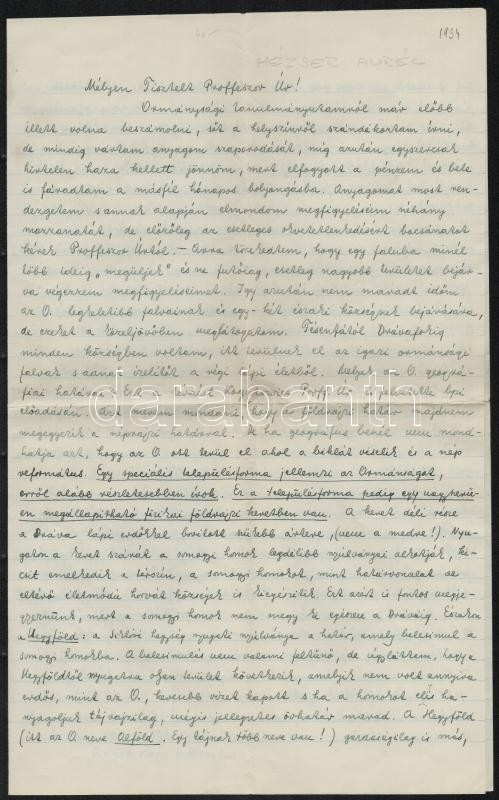 1934
HÉZSER AURÉL
Mélyen Tisztelt Proffeszor Úr!
Ormánysági tanulmányutamról már előbb
illett volna beszámolni, sőt a helyszínről szándékoztam írni,
de mindig vártam anyagom szaporodását, míg azután egyszercsak
hirtelen haza kellett jönnöm, mert elfogyott a pénzem és bele
is fáradtam a másfél hónapos bolyongásba. Anyagomat most ren-
dezgetem s annak alapján elmondom megfigyeléseim néhány
mozzanatát, de előzőleg az esetleges okvetetlenkedésért bocsánatot
kérek Proffeszor Úrtól. – Arra törekedtem, hogy egy faluba minél
több ideig „megüljek" és ne futólag, esetleg nagyobb területet bejár-
va végezzem megfigyeléseimet. Így azután nem maradt időm
az O. legkeletibb falvainak és egy-két északi községnek bejárására,
de ezeket a közeljövőben meglátogatom. Tésenfától Drávafokig
minden községben voltam, itt terülnek el az igazi ormánsági
falvak s adnak ízelítőt a régi népi életből. Melyek az O. geográ-
fiai határai? Ezt a kérdést Proff. Úr is felvetette
előadásán. Azt merem mondani, hogy a földrajzi határ majdnem
megegyezik a néprajzi határral. S ha geográfus benél nem mond-
hatja azt, hogy az O. ott terül el ahol a biklát viselik és a nép
református. Egy speciális településforma jellemzi az Ormánságot,
erről alább részletesebben írok. Ez a településforma pedig egy nagyszerű-
en megállapítható fizikai földrajzi keretben van. A keret déli része
a Dráva lápi erdőkkel borított szűkebb ártere, (nem a medre!). Nyu-
gaton a keret szárát a somogyi homok legdélibb nyúlványai alkotják, ki-
csit emelkedik a térszín, a somogyi homokot, mint határvonalat az
eltérő életmódú horvát községek is kiegészítik. Ezt azért is fontos megje-
gyeznünk, mert a somogyi homok nem megy ki egészen a Dráváig. Északon
a Hegyföld: a Siklósi hegység nyugati nyúlványa a határ, amely belesimul a
somogyi homokba. A belesimulás nem valami feltűnő, de úgy láttam, hogy a
Hegyföldtől nyugatra olyan terület következik, amelyik nem volt annyira
erdős, mint az O., kevesebb vizet kapott s ha a homokot el is ha-
nyagoljuk tájrajzilag, mégis jellegzetes övhatár marad. A Hegyföld
(itt az O. neve Alföld. Egy tájnak több neve van!) gazdaságilag is más,
darabanth